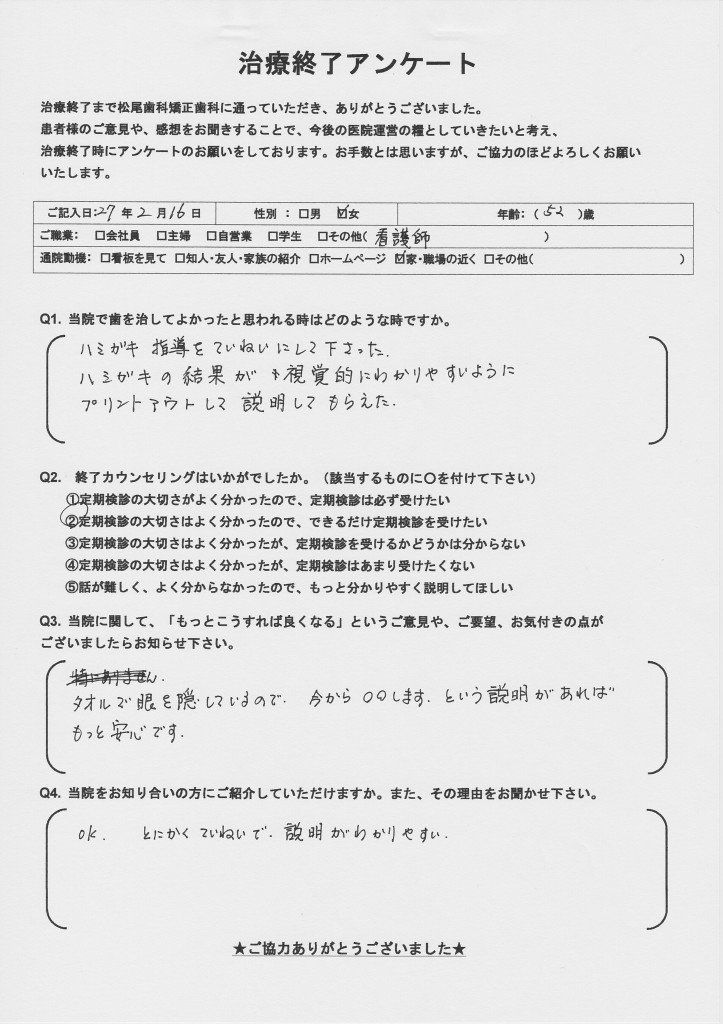 治療終了アンケート
治療終了まで松尾歯科矯正歯科に通っていただき、ありがとうございました。
患者様のご意見や、感想をお聞きすることで、今後の医院運営の糧としていきたいと考え、
治療終了時にアンケートのお願いをしております。お手数とは思いますが、ご協力のほどよろしくお願い
いたします。
ご記入日:27 年 2 月 16 日 性別 : □男 ☑女 年齢:( 52 )歳
ご職業: □会社員 □主婦 □自営業 □学生 □その他( 看護師 )
通院動機: □看板を見て □知人・友人・家族の紹介 □ホームページ ☑家・職場の近く □その他( )
Q1. 当院で歯を治してよかったと思われる時はどのような時ですか。
ハミガキ 指導をていねいにして下さった.
ハミガキの結果が 視覚的にわかりやすいように
プリントアウトして 説明して もらえた.
Q2. 終了カウンセリングはいかがでしたか。(該当するものに〇を付けて下さい)
①定期検診の大切さがよく分かったので、定期検診は必ず受けたい
②定期検診の大切さはよく分かったので、できるだけ定期検診を受けたい
③定期検診の大切さはよく分かったが、定期検診を受けるかどうかは分からない
④定期検診の大切さはよく分かったが、定期検診はあまり受けたくない
⑤話が難しく、よく分からなかったので、もっと分かりやすく説明してほしい
Q3. 当院に関して、「もっとこうすれば良くなる」というご意見や、ご要望、お気付きの点が
ございましたらお知らせ下さい。
特にありません.
タオルで眼を隠しているので. 今から 〇〇します. という説明があれば
もっと安心です.
Q4. 当院をお知り合いの方にご紹介していただけますか。また、その理由をお聞かせ下さい。
OK. とにかく ていねいで. 説明がわかりやすい.
★ご協力ありがとうございました★